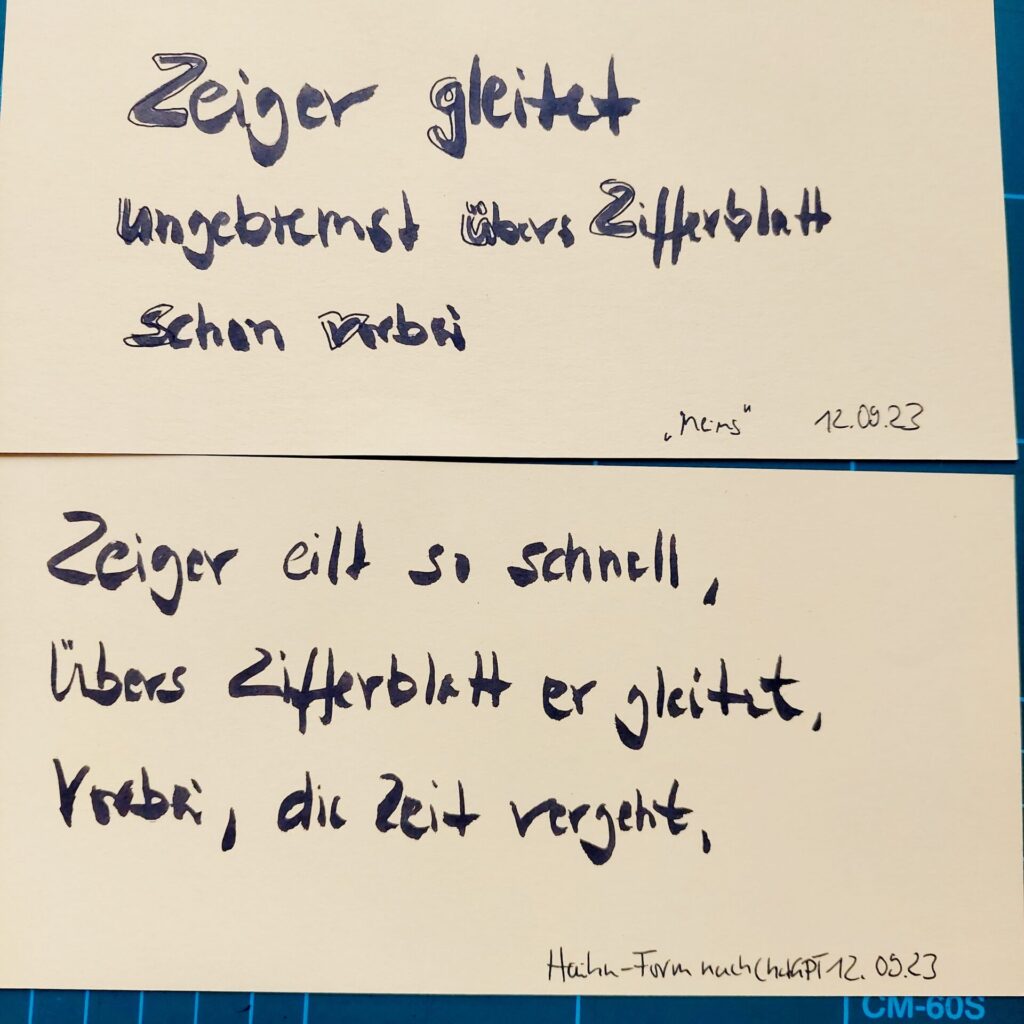 Zeiger gleitet
ungebremst übers Zifferblatt
schon vorbei
„Meins" 12.09.23
Zeiger eilt so schnell,
Übers Zifferblatt er gleitet,
Vorbei, die Zeit vergeht,
Haiku-Form nach ChatGPT 12.09.23
CM-60S